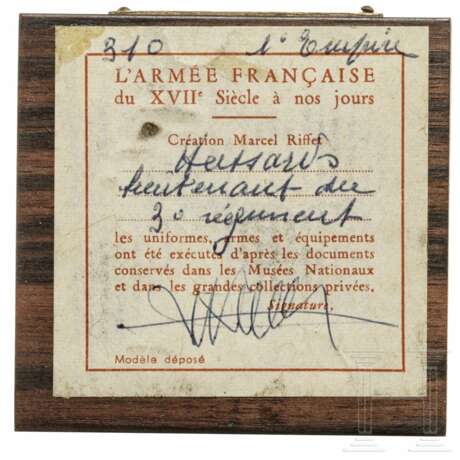 310 1e Empire
L'ARMÉE FRANÇAISE
du XVIIe Siècle à nos jours
Création Marcel Riffet
Hussards
lieutenant du
3e régiment
les uniformes, armes et équipements
ont été exécutés d'après les documents
conservés dans les Musées Nationaux
et dans les grandes collections privées.
Signature.
Modèle déposé